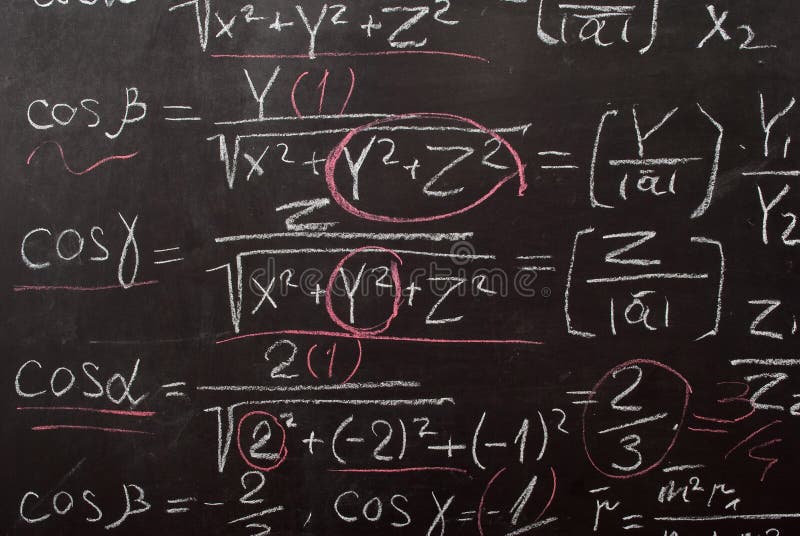 √x²+Y²+Z² = (/|a̅|) X₂
cos β = Y (1) / √x²+Y²+Z² = [Y/|a̅|] · Y₁/Y₂
cos γ = Z / √x²+Y²+Z² = [Z/|a̅|] Z₁/Z₂
cos α = 2 (1) / √2²+(-2)²+(-1)² = 2/3 . = 3/4
cos β = -2/3 , cos γ = (-1) r̅ = m̅²r₁
dreamstime